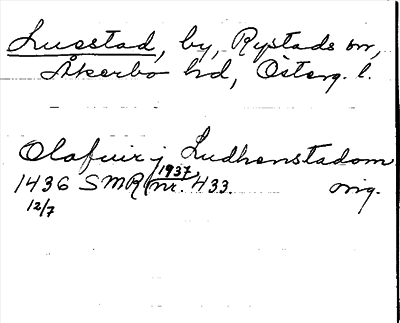 Lusstad, by, Rystads sn,
Åkerbo hd, Österg. l.
Olafuir j Ludhenstadom
1436 SMR (1937) nr. 433. orig.
12/7